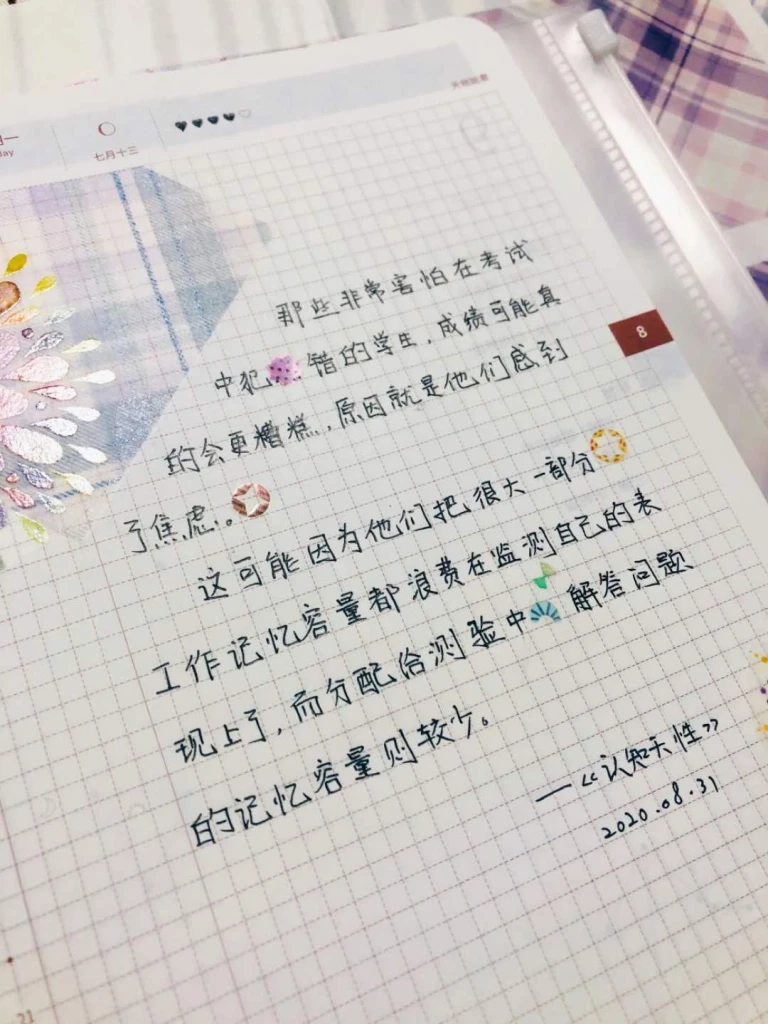 一
day
七月十三
8
那些非常害怕在考试
中犯错的学生，成绩可能真
的会更糟糕，原因就是他们感到
了焦虑。
这可能因为他们把很大一部分
工作记忆容量都浪费在监测自己的表
现上了，而分配给测验中解答问题
的记忆容量则较少。
—《认知天性》
2020.08.31
21